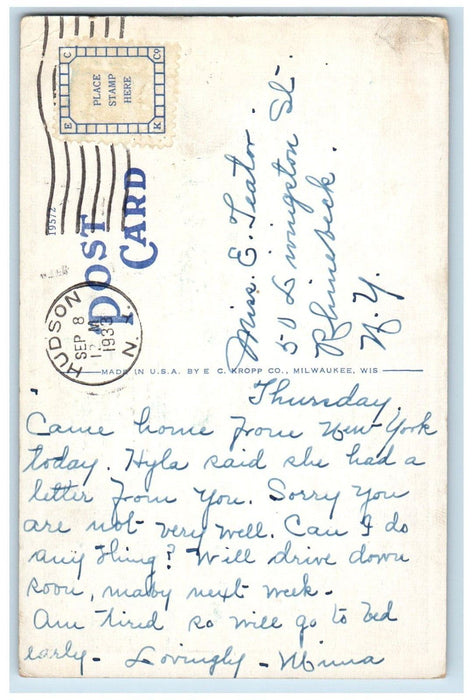 PLACE
STAMP
HERE
E C Co K
19572
POST
CARD
HUDSON
SEP 8
12 M
1933
N.Y.
MADE IN U.S.A. BY E. C. KROPP CO., MILWAUKEE, WIS
Miss. E. Teator
50 Livingston St.
Rhinebeck.
N.Y.
Thursday.
Came home from New York
today. Hyla said she had a
letter from you. Sorry you
are not very well. Can I do
any thing? Will drive down
soon, maby next week.
Am tired so will go to bed
early - Lovingly - Minna